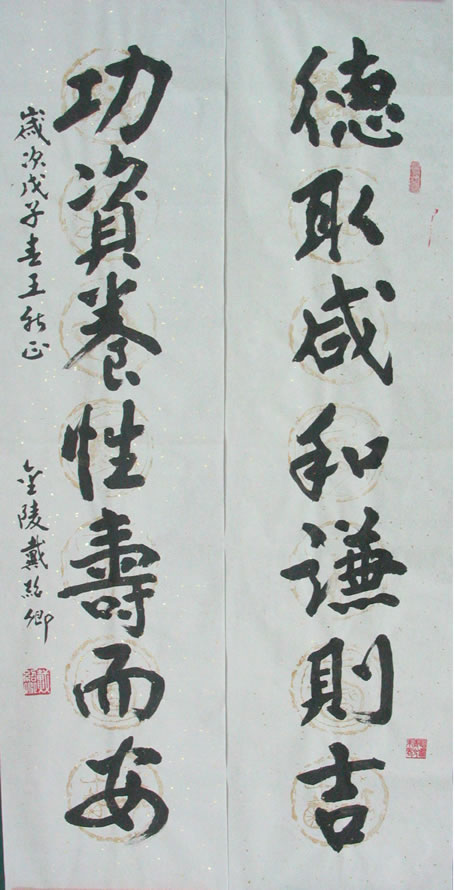 德取咸和謙則吉
功資養性壽而安
歲次戊子春王
金陵戴紹卿